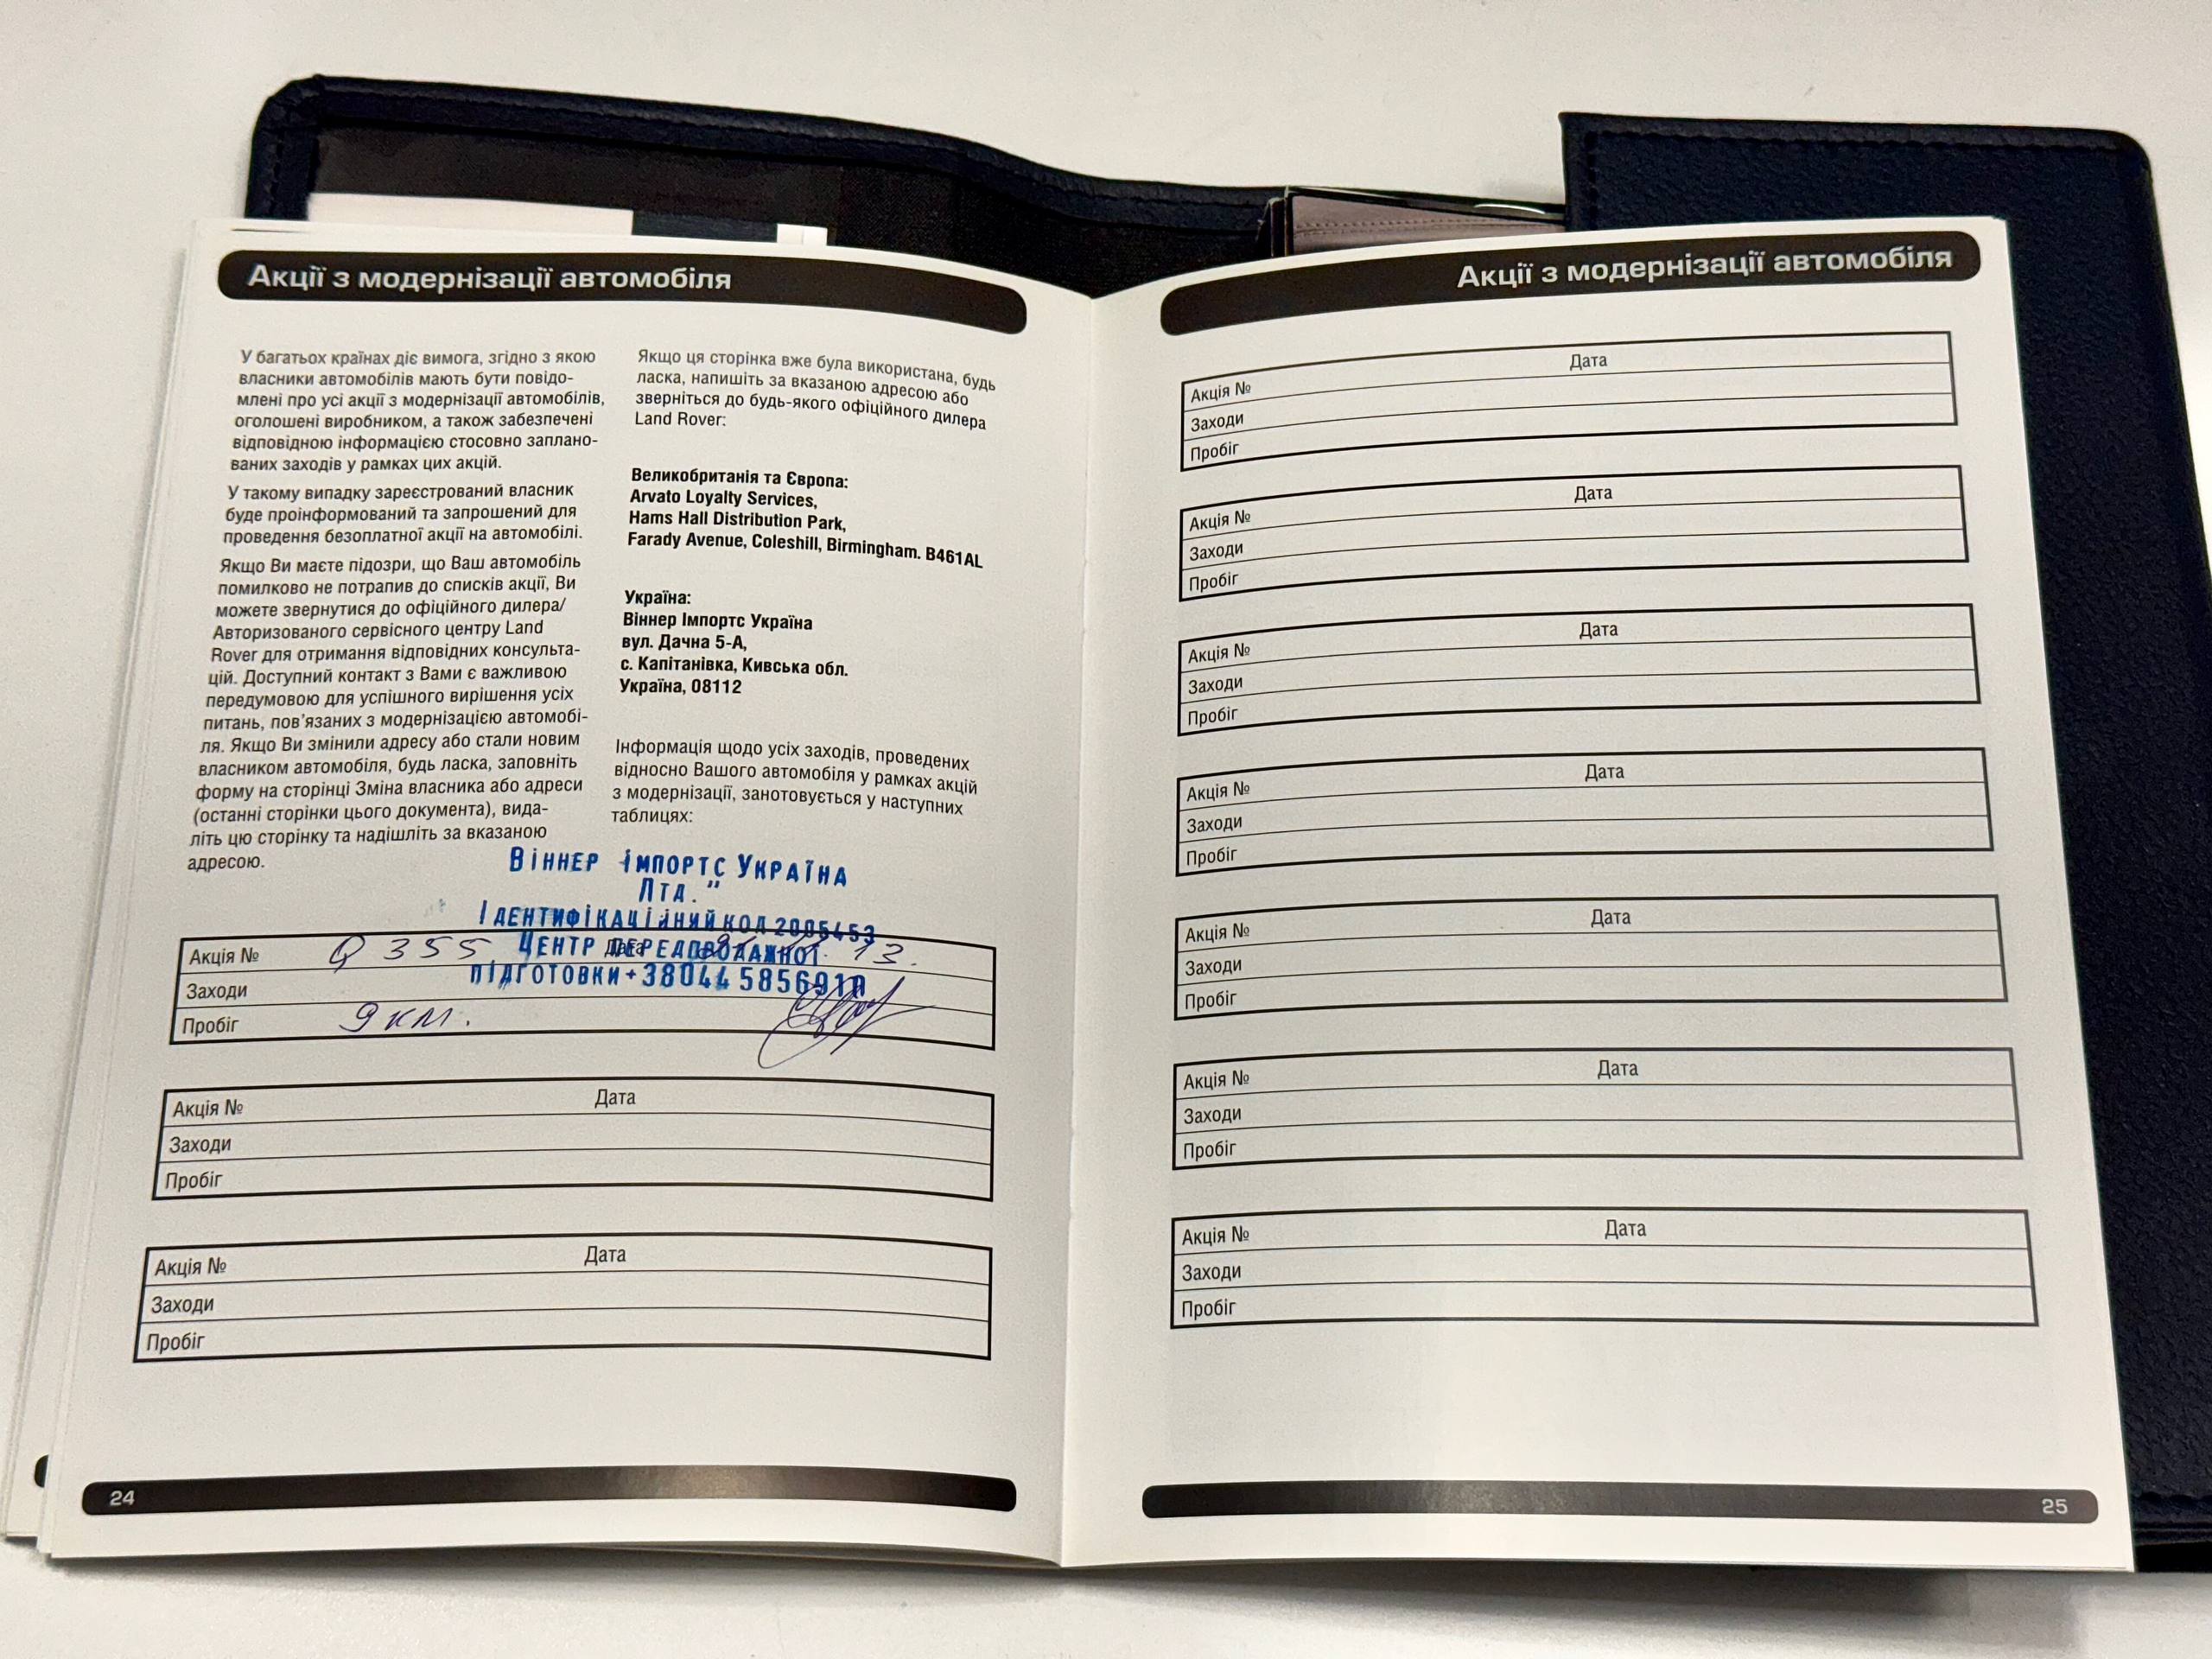 Акції з модернізації автомобіля
У багатьох країнах діє вимога, згідно з якою
власники автомобілів мають бути повідо-
млені про усі акції з модернізації автомобілів,
оголошені виробником, а також забезпечені
відповідною інформацією стосовно заплано-
ваних заходів у рамках цих акцій.
У такому випадку зареєстрований власник
буде проінформований та запрошений для
проведення безоплатної акції на автомобілі.
Якщо Ви маєте підозри, що Ваш автомобіль
помилково не потрапив до списків акції, Ви
можете звернутися до офіційного дилера/
Авторизованого сервісного центру Land
Rover для отримання відповідних консульта-
цій. Доступний контакт з Вами є важливою
передумовою для успішного вирішення усіх
питань, пов’язаних з модернізацією автомобі-
ля. Якщо Ви змінили адресу або стали новим
власником автомобіля, будь ласка, заповніть
форму на сторінці Зміна власника або адреси
(останні сторінки цього документа), вида-
літь цю сторінку та надішліть за вказаною
адресою.
Якщо ця сторінка вже була використана, будь
ласка, напишіть за вказаною адресою або
зверніться до будь-якого офіційного дилера
Land Rover:
Великобританія та Європа:
Arvato Loyalty Services,
Hams Hall Distribution Park,
Farady Avenue, Coleshill, Birmingham. B461AL
Україна:
Віннер Імпортс Україна
вул. Дачна 5-А,
с. Капітанівка, Кивська обл.
Україна, 08112
Інформація щодо усіх заходів, проведених
відносно Вашого автомобіля у рамках акцій
з модернізації, занотовується у наступних
таблицях:
ВІННЕР ІМПОРТС УКРАЇНА
ЛТД."
ІДЕНТИФІКАЦІЙНИЙ КОД 2005453
ЦЕНТР ПЕРЕДПРОДАЖНОЇ
ПІДГОТОВКИ+380445856910
Акція № Q 355 Дата 13.
Заходи
Пробіг 9 км.
Акція № Дата
Заходи
Пробіг
Акція № Дата
Заходи
Пробіг
24
Акції з модернізації автомобіля
Акція № Дата
Заходи
Пробіг
Акція № Дата
Заходи
Пробіг
Акція № Дата
Заходи
Пробіг
Акція № Дата
Заходи
Пробіг
Акція № Дата
Заходи
Пробіг
Акція № Дата
Заходи
Пробіг
Акція № Дата
Заходи
Пробіг
25